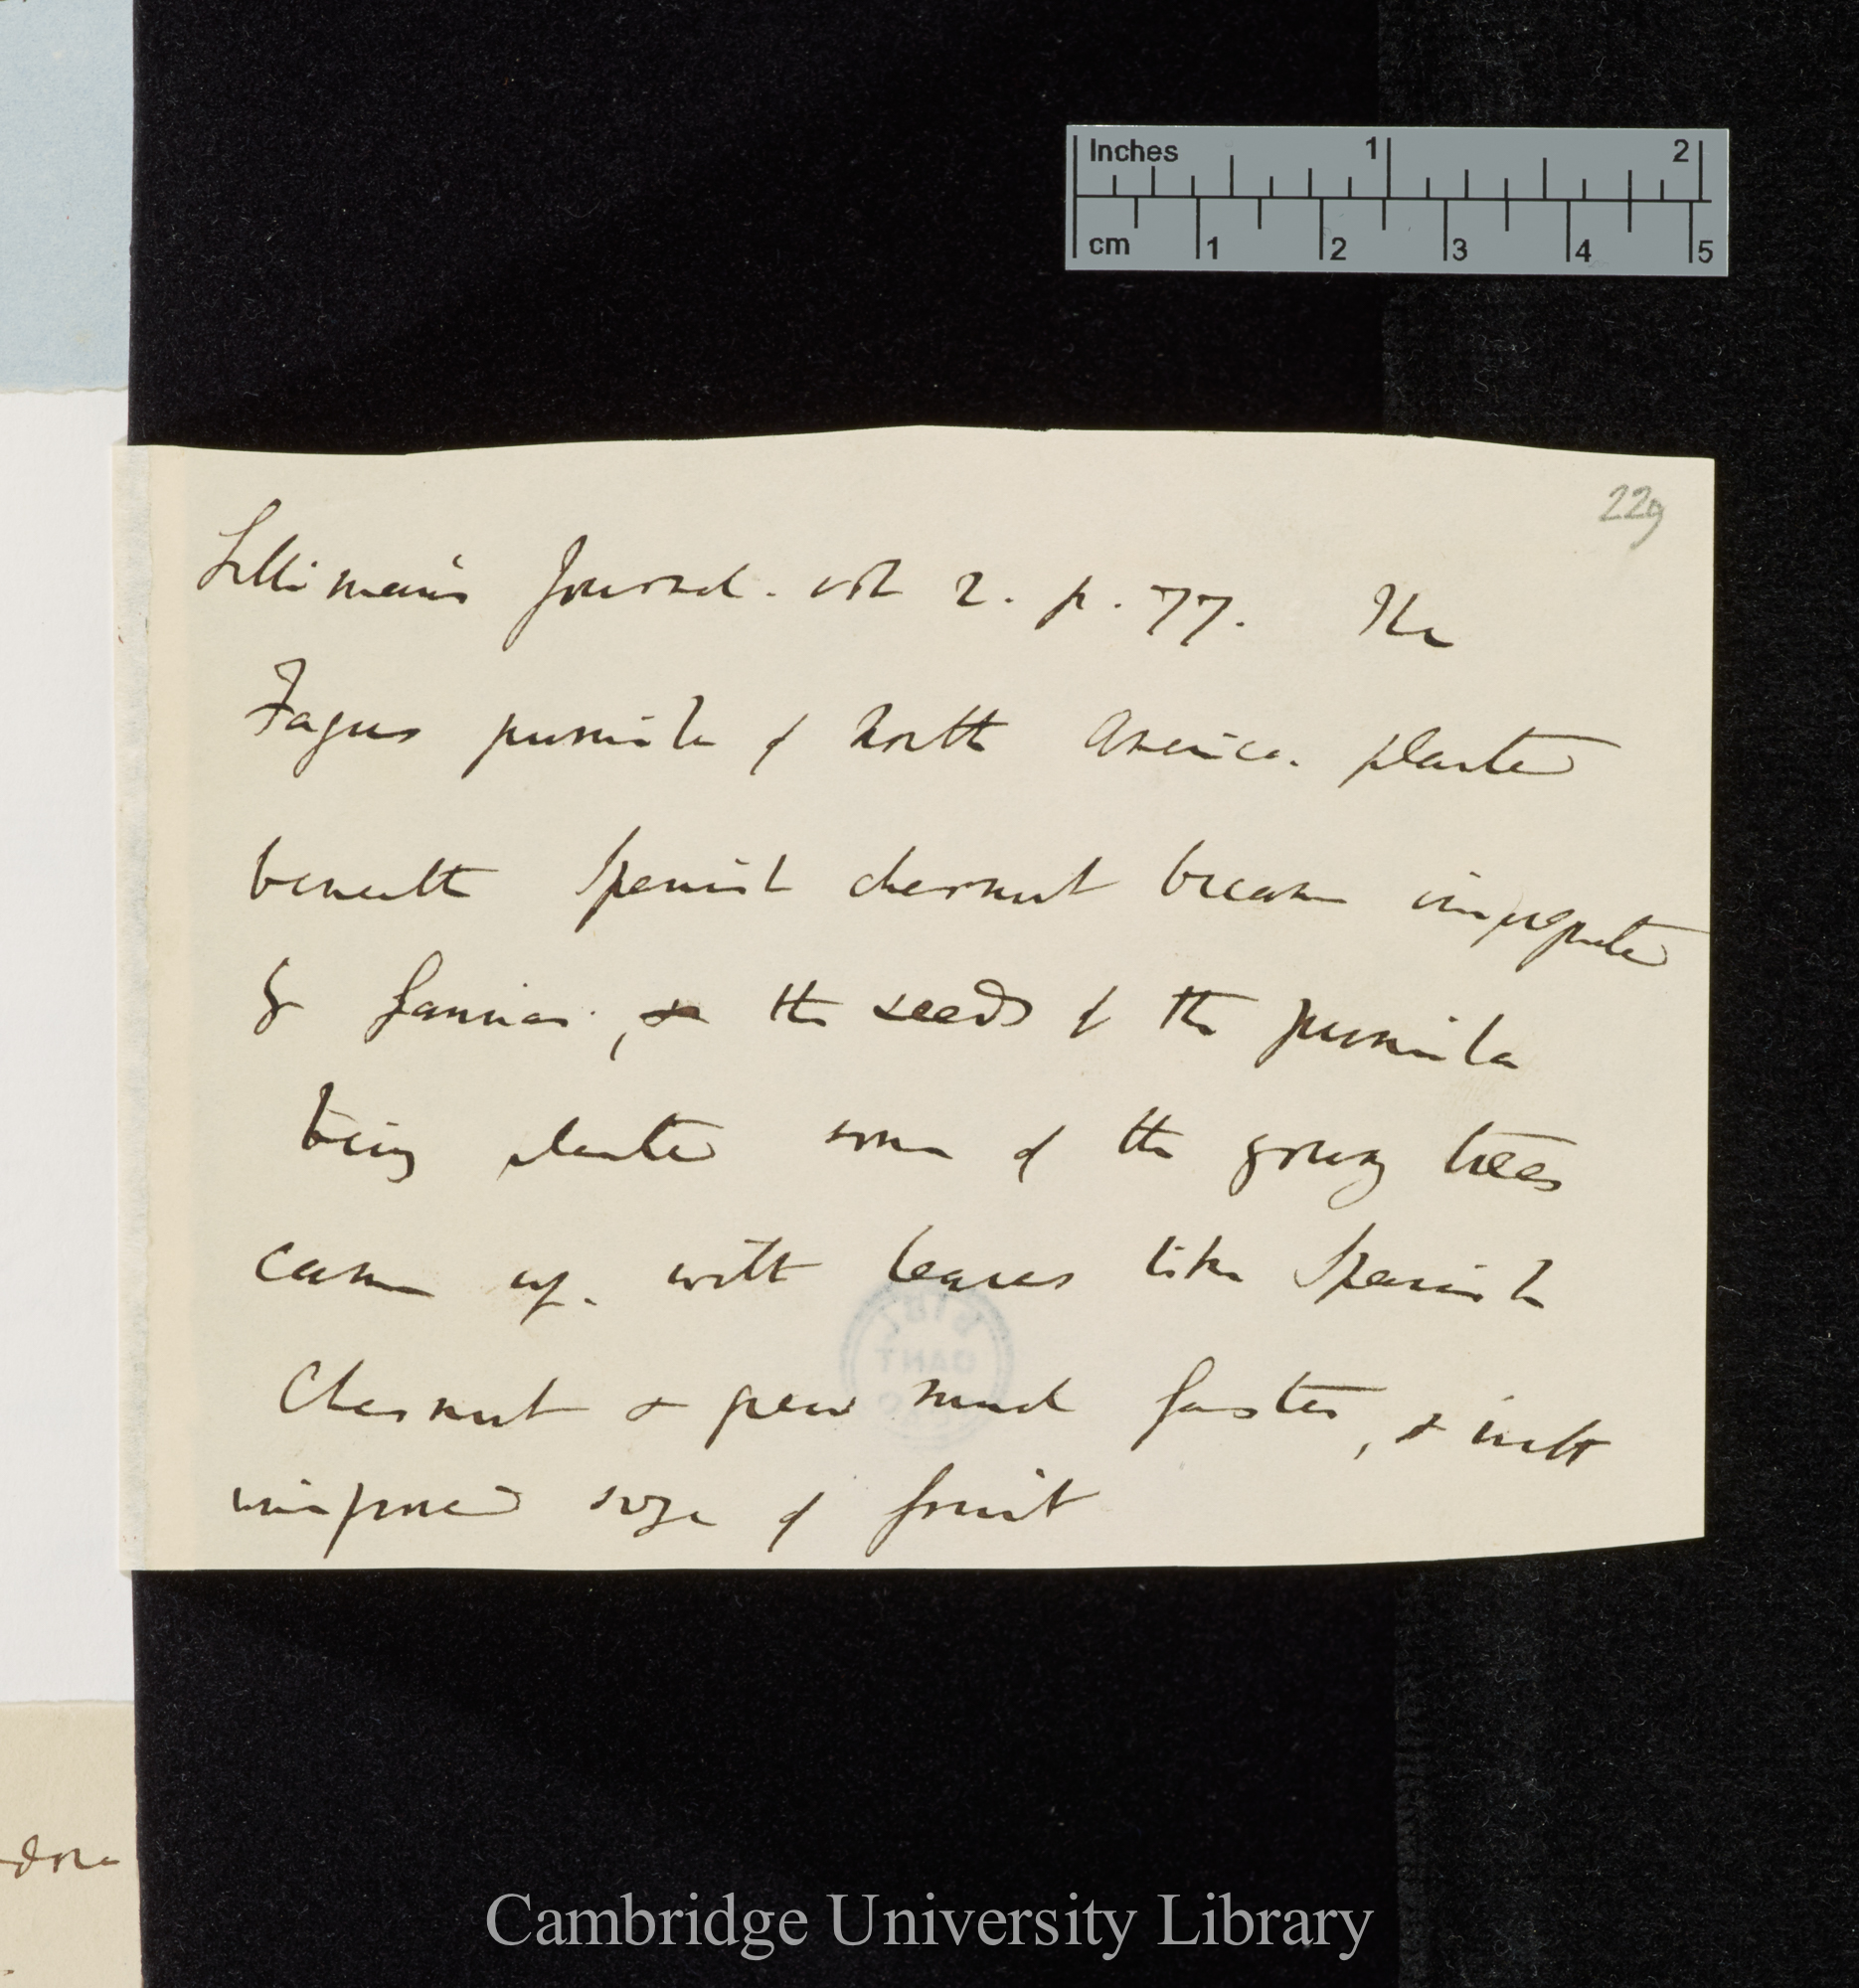 Inches 1 2
cm 1 2 3 4 5
229
Sillimans Journal. vol 2. p. 77. The
Fagus pumila of North America. planted
beneath Spanish chesnut became impregnated
by farina, the seeds of the pumila
being planted some of the young trees
came up. with leaves like Spanish
Chesnut & grew much faster, & with
improved size of fruit
Cambridge University Library